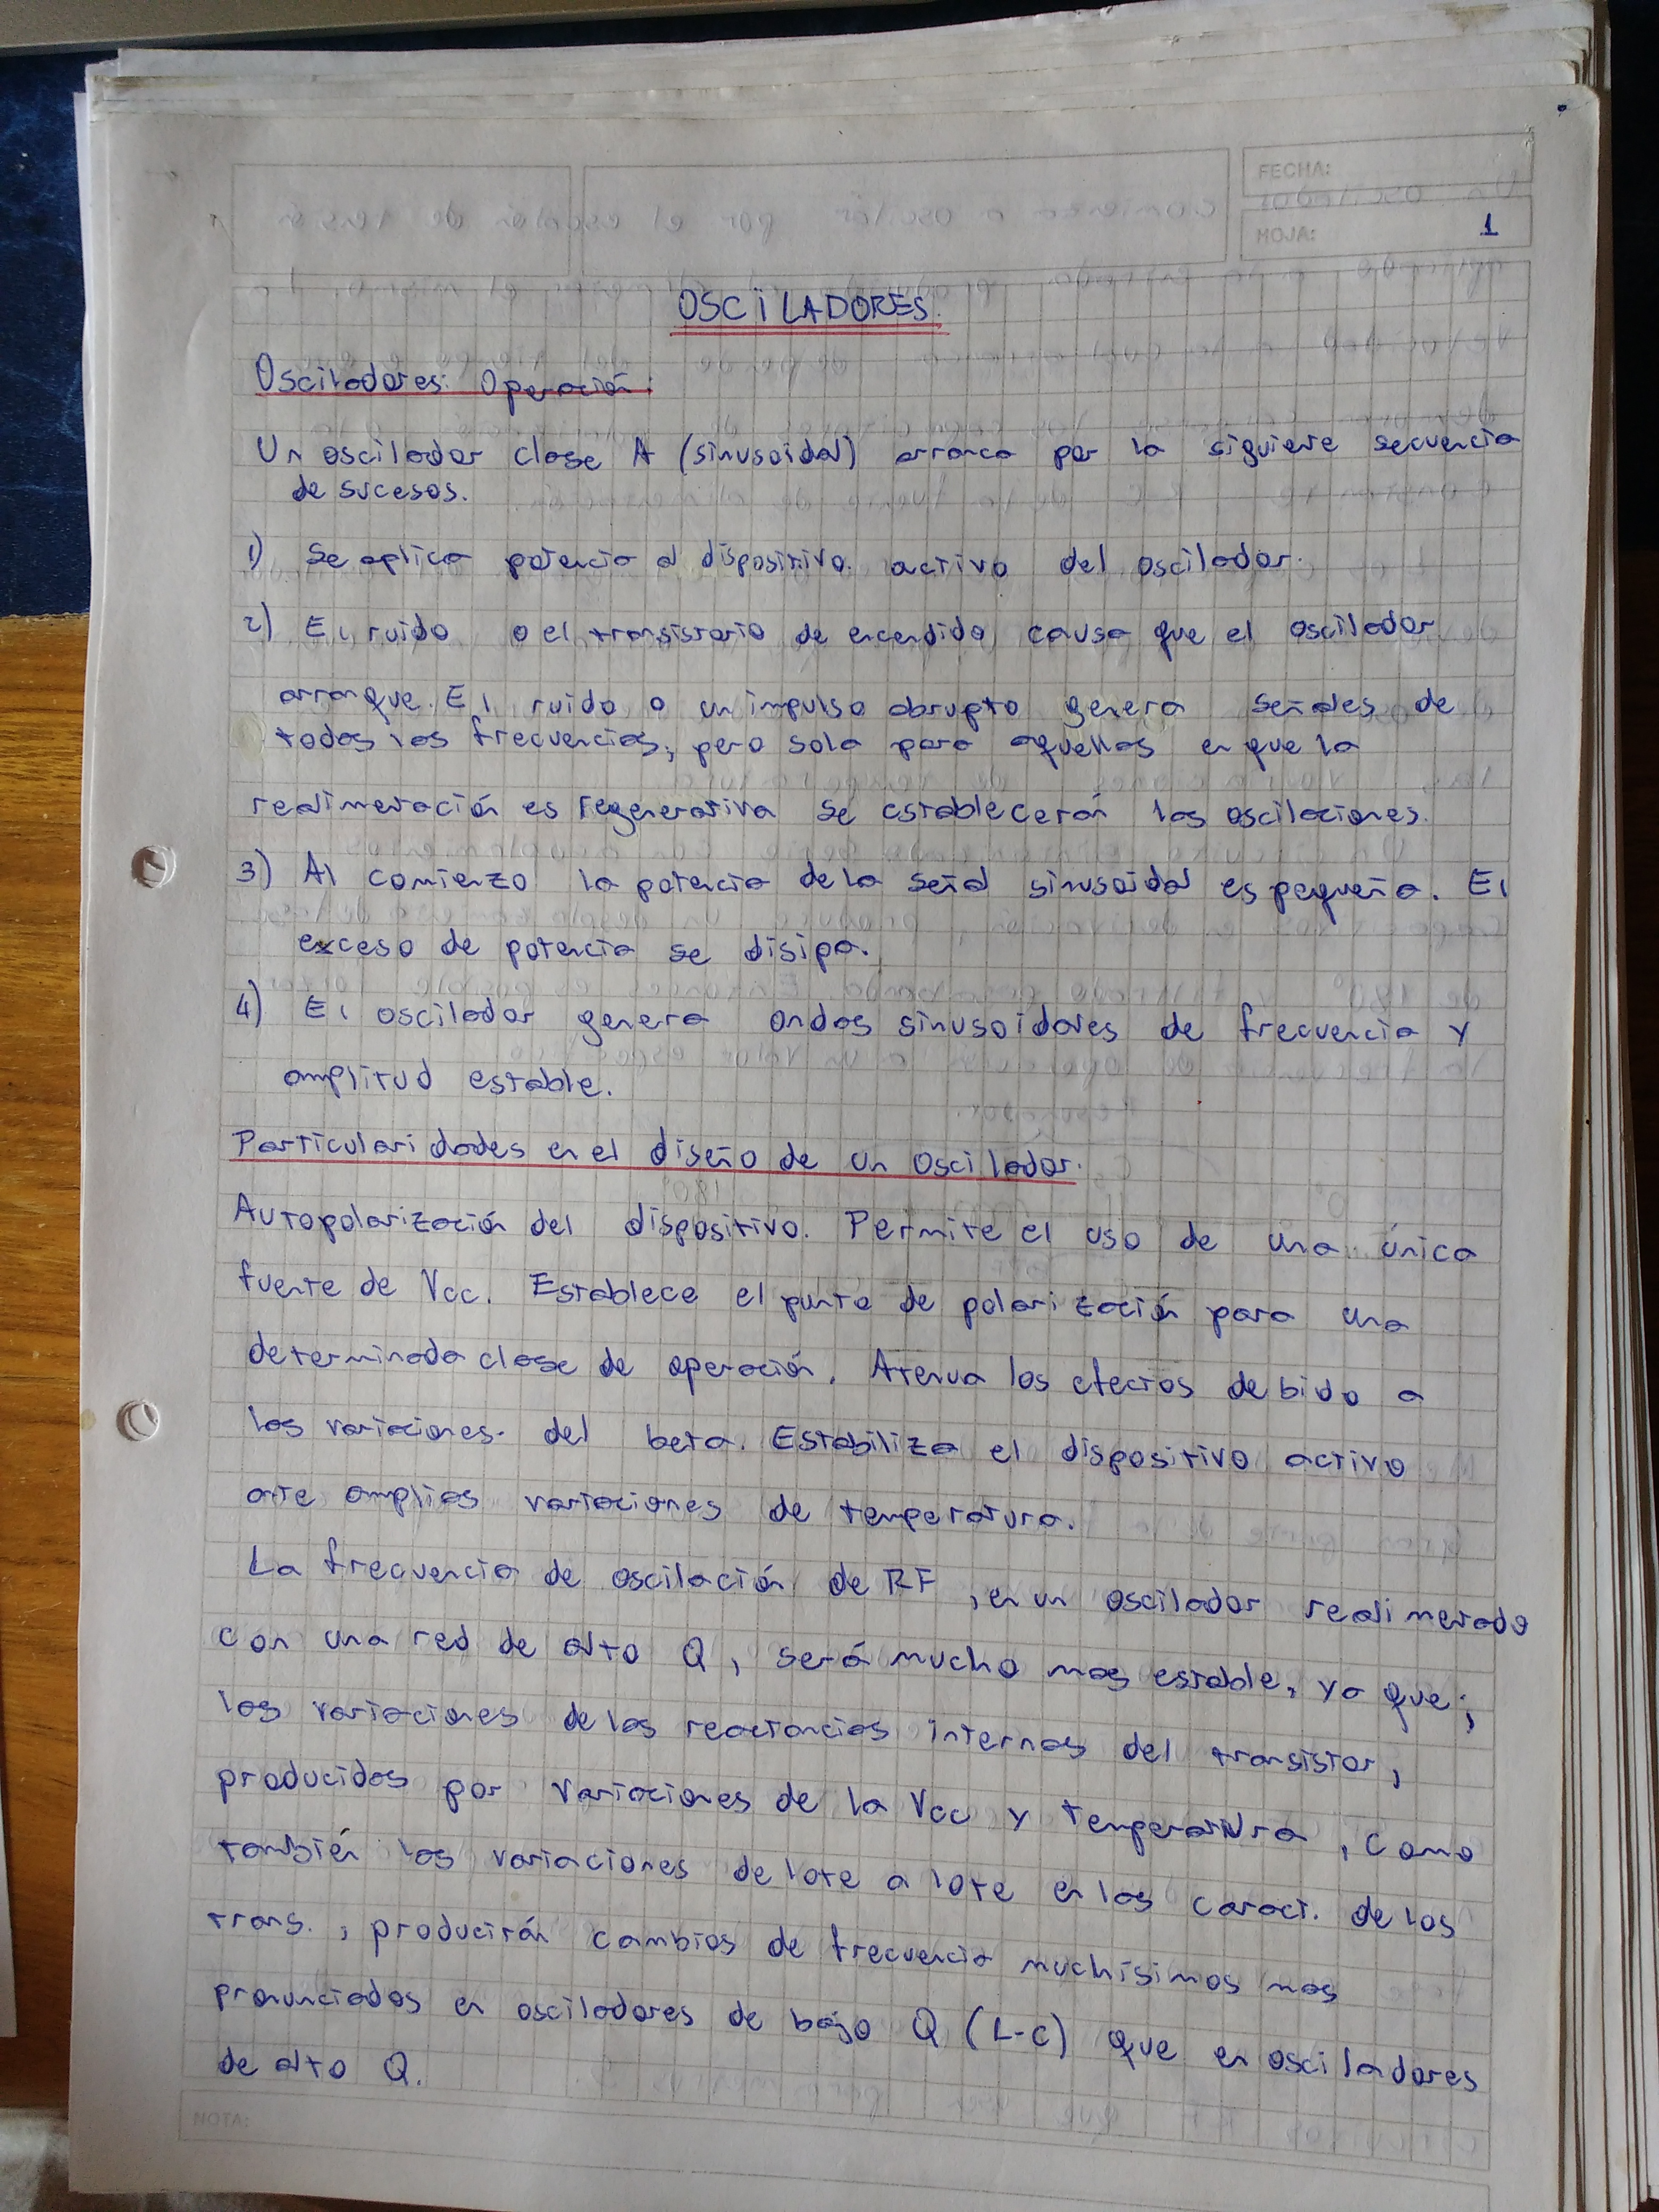 FECHA:
HOJA: 1
OSCILADORES.
Osciladores: Operación:
Un oscilador clase A (sinusoidal) arranca por la siguiente secuencia
de sucesos.
1) Se aplica potencia al dispositivo activo del oscilador.
2) El ruido o el transistorio de encendido causa que el oscilador
arranque. El ruido o un impulso abrupto genera señales de
todas las frecuencias, pero solo para aquellas en que la
realimentación es regenerativa se establecerán las oscilaciones.
3) Al comienzo la potencia de la señal sinusoidal es pequeña. El
exceso de potencia se disipa.
4) El oscilador genera ondas sinusoidales de frecuencia y
amplitud estable.
Particularidades en el diseño de un oscilador.
Autopolarización del dispositivo. Permite el uso de una única
fuente de Vcc. Establece el punto de polarización para una
determinada clase de operación. Atenua los efectos debido a
las variaciones del beta. Estabiliza el dispositivo activo
ante amplias variaciones de temperatura.
La frecuencia de oscilación de RF, en un oscilador realimentado
con una red de alto Q, será mucho mas estable, ya que;
las variaciones de las reactancias internas del transistor,
producidas por variaciones de la Vcc y temperatura, como
también las variaciones de lote a lote en las caract. de los
trans., producirán cambios de frecuencia muchísimos mas
pronunciados en osciladores de bajo Q (L-C) que en osciladores
de alto Q.
NOTA: